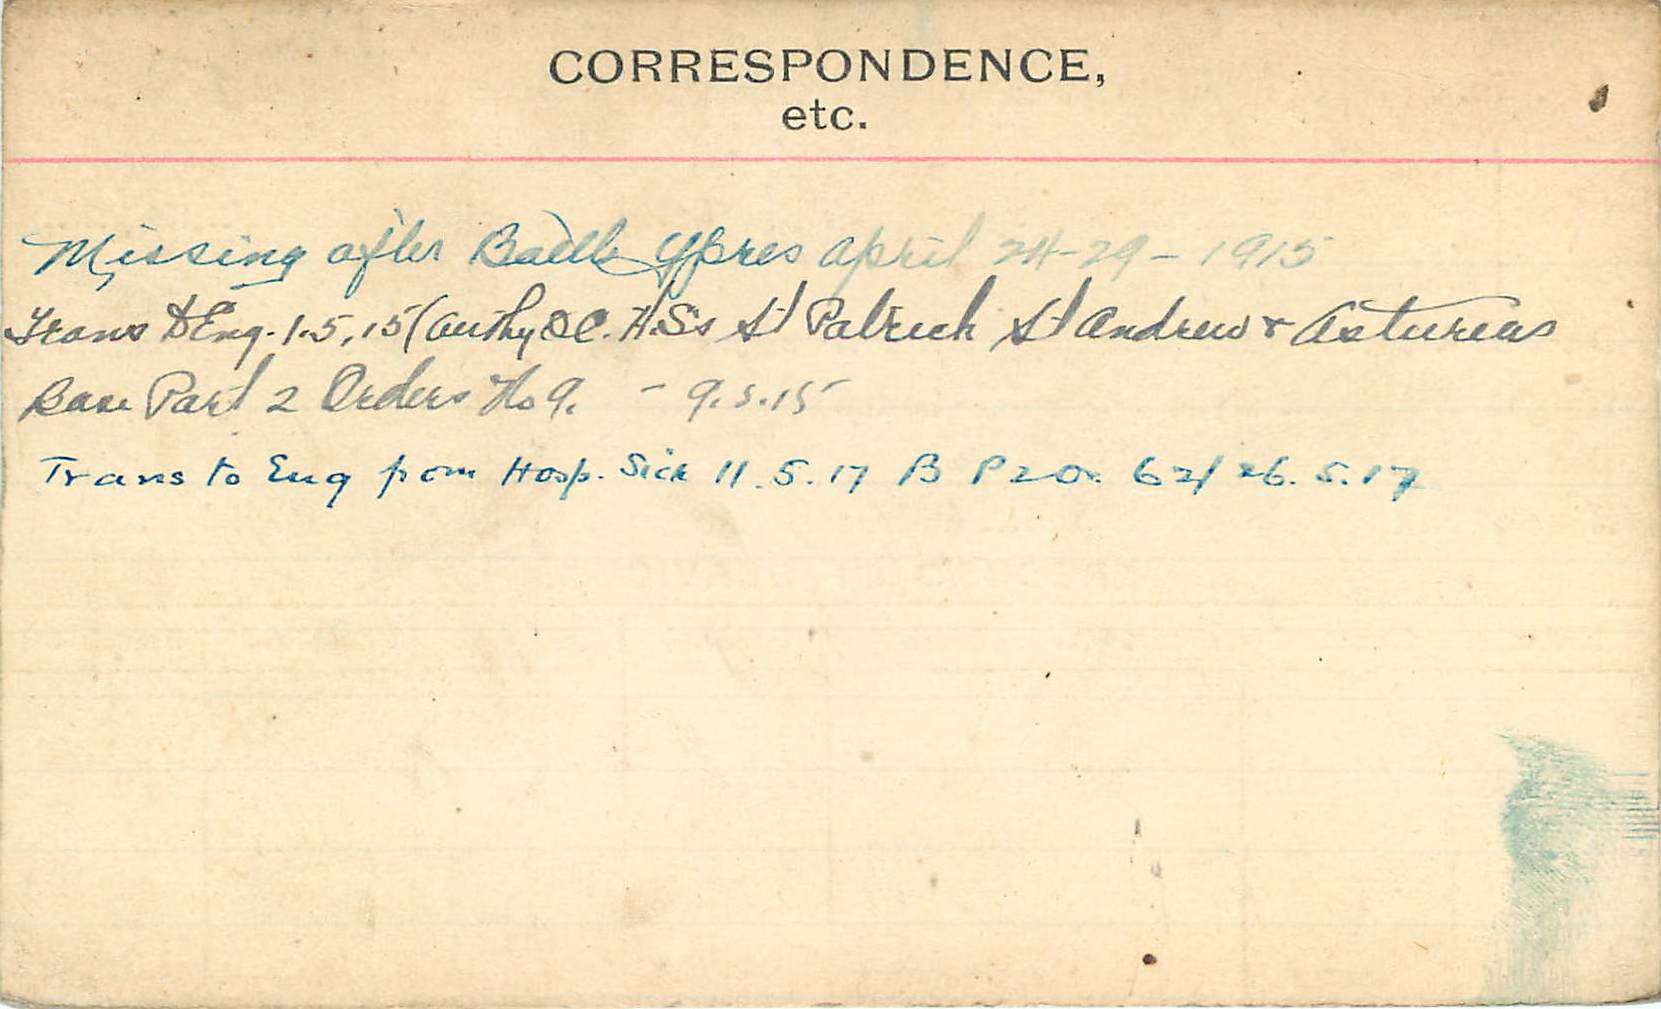 CORRESPONDENCE,
etc.
Missing after Battle Ypres April 24-29-1915
Trans to Eng. 1.5.15 (Authy O C. H.S's St Patrick St Andrew & Asturias
Base Part 2 Orders No 9. - 9.5.15
Trans to Eng from Hosp. Sick 11.5.17 B P 2 O. 62/ 26.5.17